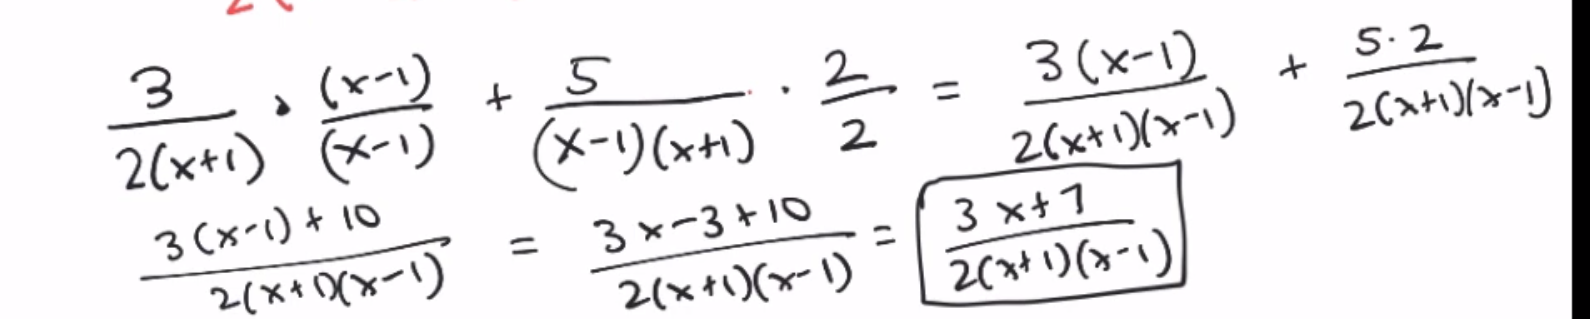 3/2(x+1) · (x-1)/(x-1) + 5/(x-1)(x+1) · 2/2 = 3(x-1)/2(x+1)(x-1) + 5·2/2(x+1)(x-1)
3(x-1)+10/2(x+1)(x-1) = 3x-3+10/2(x+1)(x-1) = 3x+7/2(x+1)(x-1)